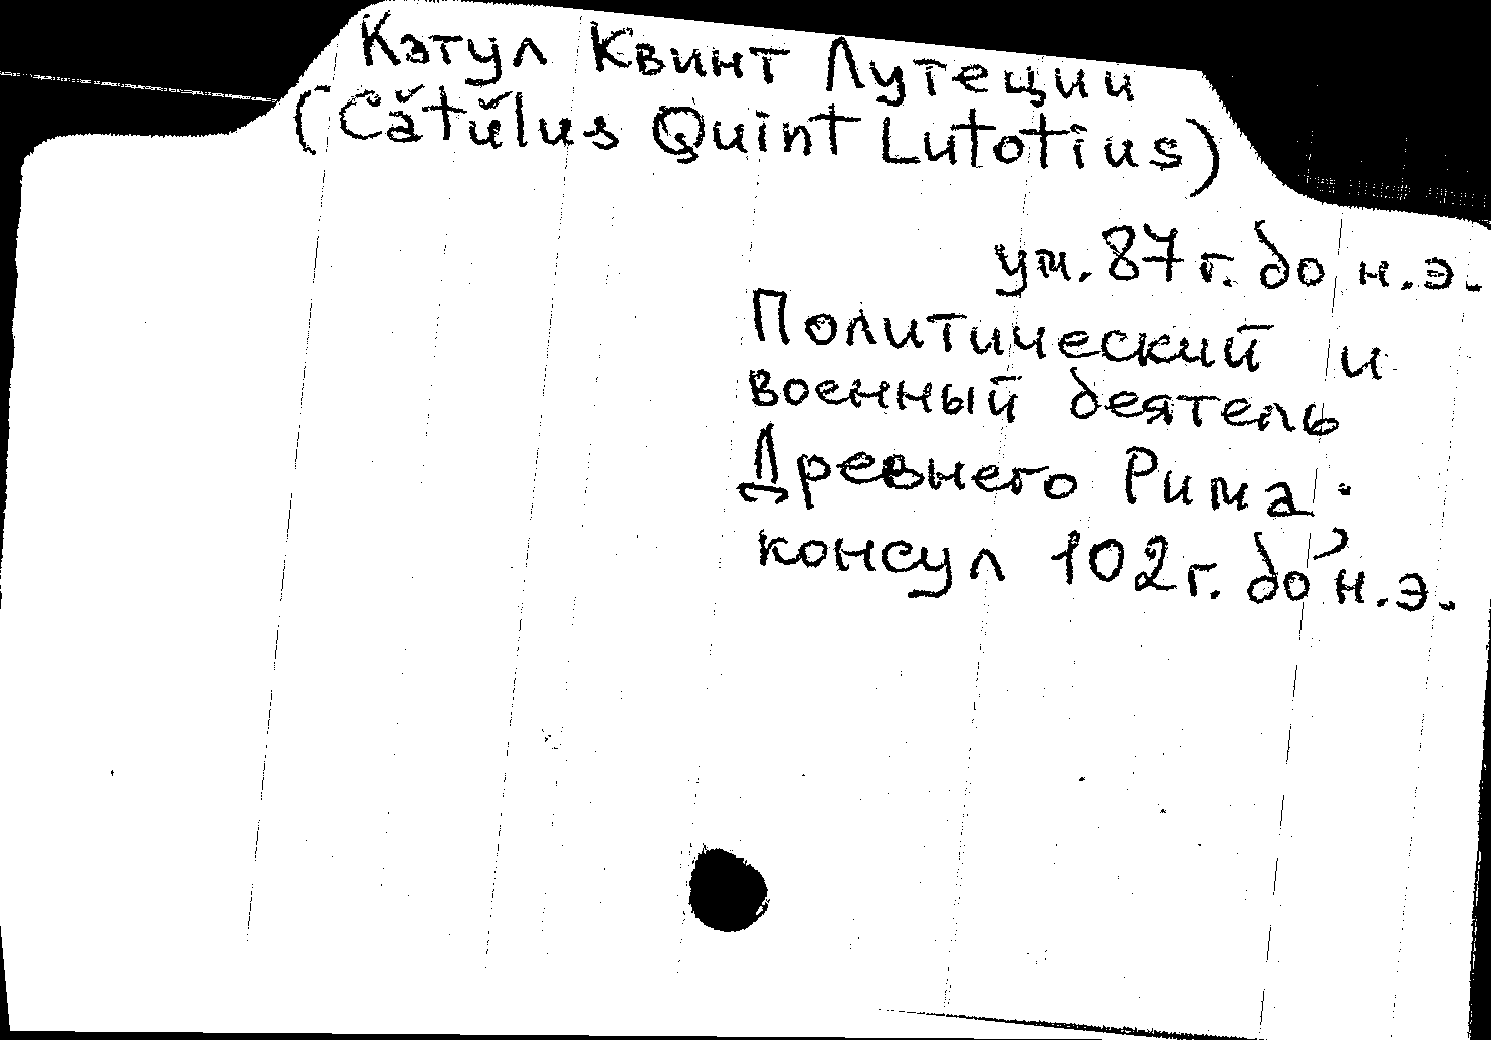 Кэтул Квинт Лутеции
(Cătŭlus Quint Lutotius)
ум. 87 г. до н.э.
Политический и
военный деятель
Древнего Рима;
консул 102 г. до н.э.